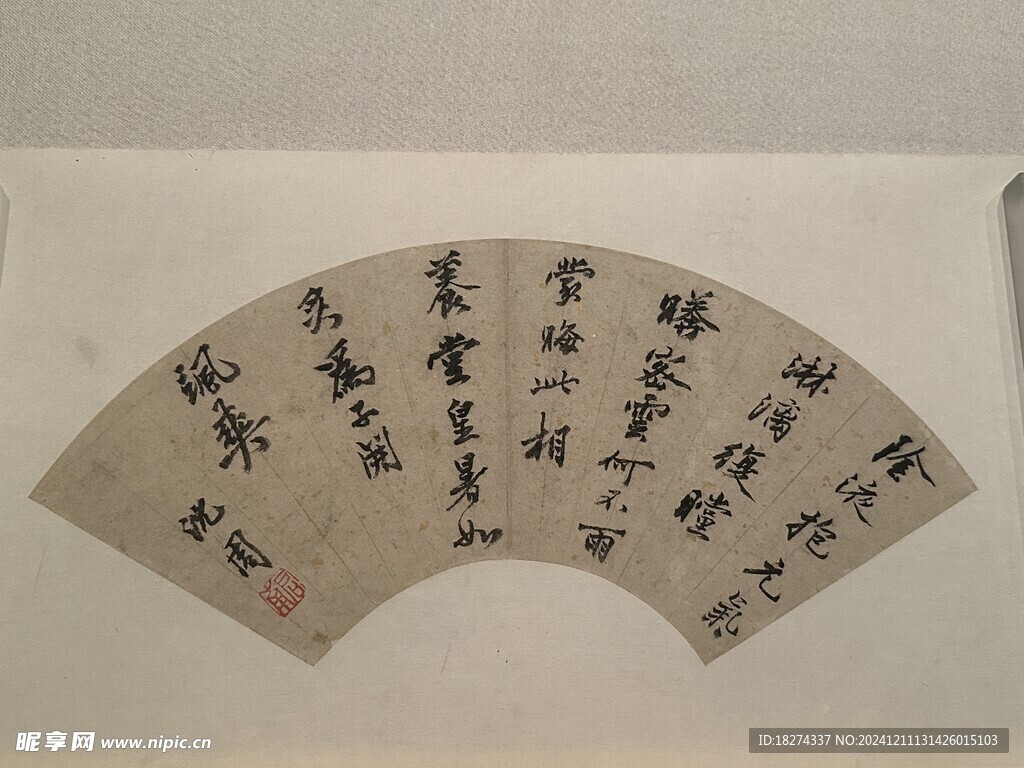 陰液抱元氣
淋漓復曈
曨密雲何不雨
蒙晦此相
養堂皇暑如
炙為子開
颯爽
沈周
昵享网 www.nipic.cn
ID:18274337 NO:20241211131426015103